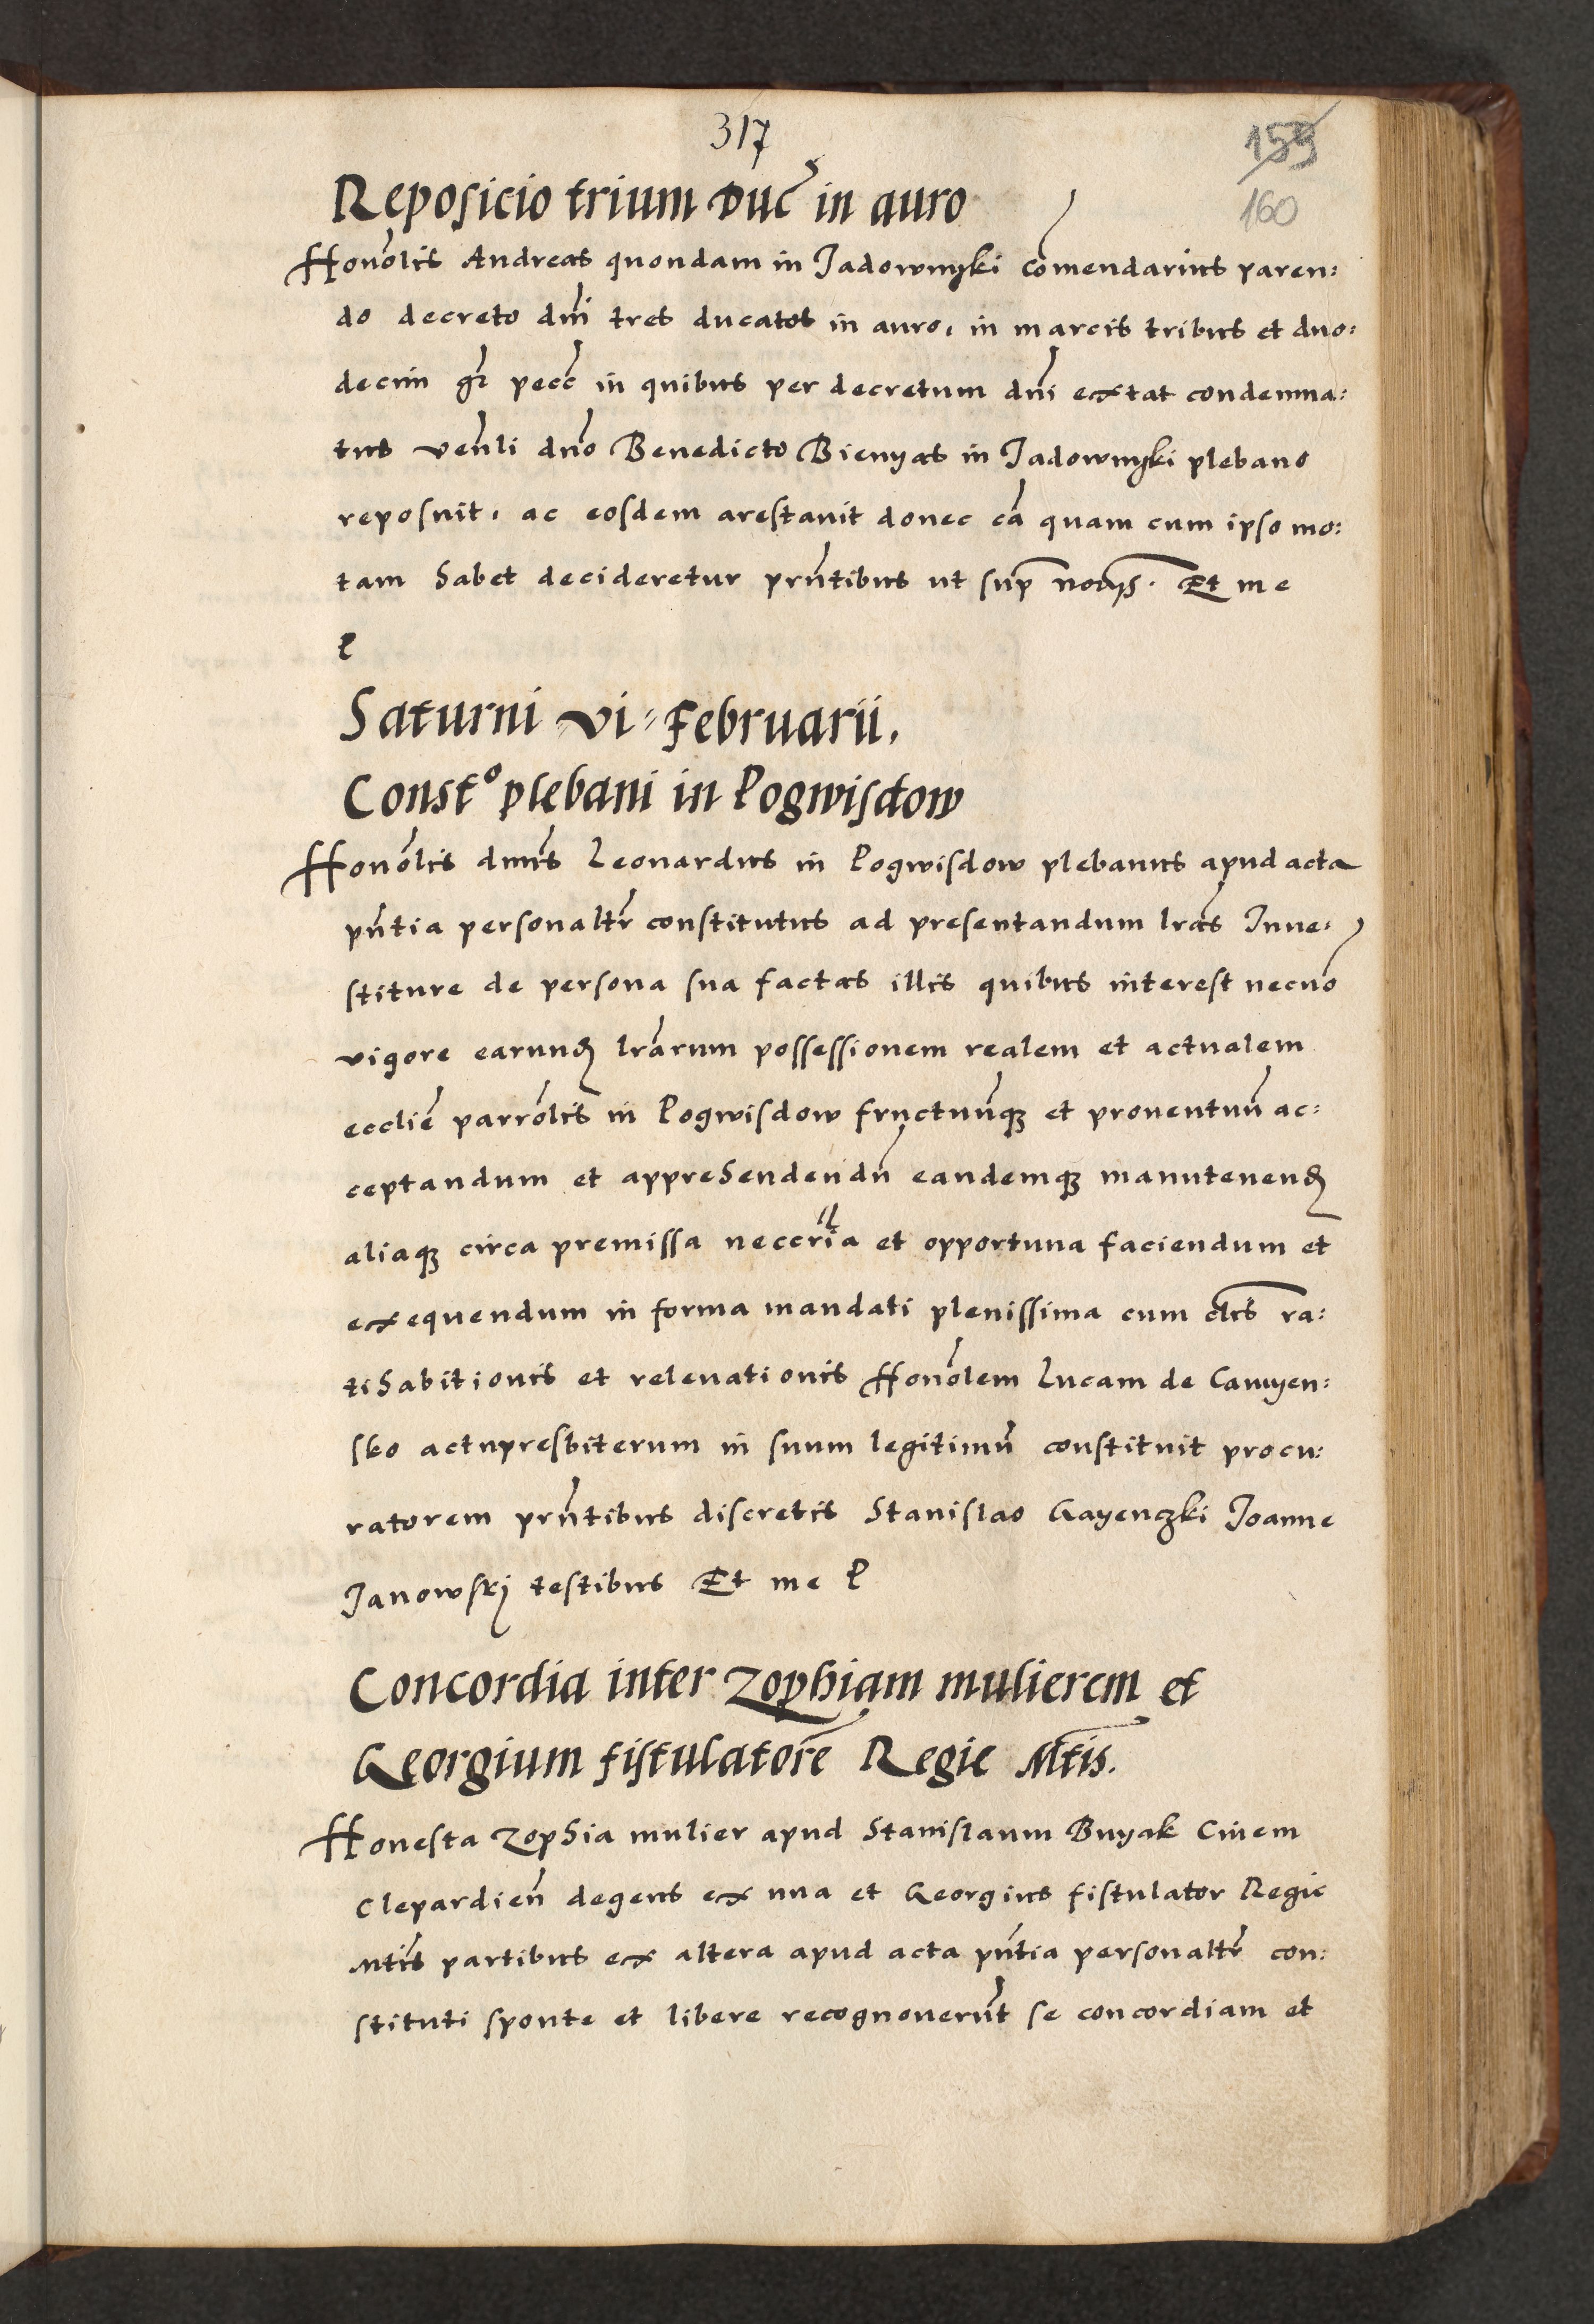 317
159
160
Reposicio trium Duc̃ in auro
Honõlis Andreas quondam in Jadownyki cõmendarius paren:
do decreto dñi tres ducatos in auro, in marcis tribus et duo:
decim gr̃ pecc̃ in quibus per decretum dñi extat condemna:
tus veñli dño Benedicto Bienyas in Jadownyki plebano
reposuit, ac eosdem arestavit donec cã quam cum ipso mo:
tam habet decideretur prñtibus ut sup̃ not̃ijs. Et me
P
Saturni vi Februarii.
Constᵒ plebani in Pogwisdow
Honõlis dnũs Leonardus in Pogwisdow plebanus apud acta
pñtia personaltr̃ constitutus ad presentandum lrãs Inve:
stiture de persona sua factas illis quibus interest necnõ
vigore earund̃ lrãrum possessionem realem et actualem
eccliẽ parrõlis in Pogwisdow fructuũqꝫ et proventuũ ac:
ceptandum et apprehendendũ eandemqꝫ manutenend̃
aliaqꝫ circa premissa neccr̃ia et opportuna faciendum et
exequendum in forma mandati plenissima cum cl̃is ra:
tihabitionis et relevationis Honõlem Lucam de Camyen:
sko actupresbiterum in suum legitimũ constituit procu:
ratorem prñtibus discretis Stanislao Gayenczki Joanne
Janowskj testibus Et me P
Concordia inter Zophiam mulierem et
Georgium fistulatorẽ Regie Mt̃is.
Honesta Zophia mulier apud Stanislaum Buyak Civem
Clepardieñ degens ex una et Georgius fistulator Regie
Mt̃is partibus ex altera apud acta pñtia personaltr̃ con:
stituti sponte et libere recognoverũt se concordiam et